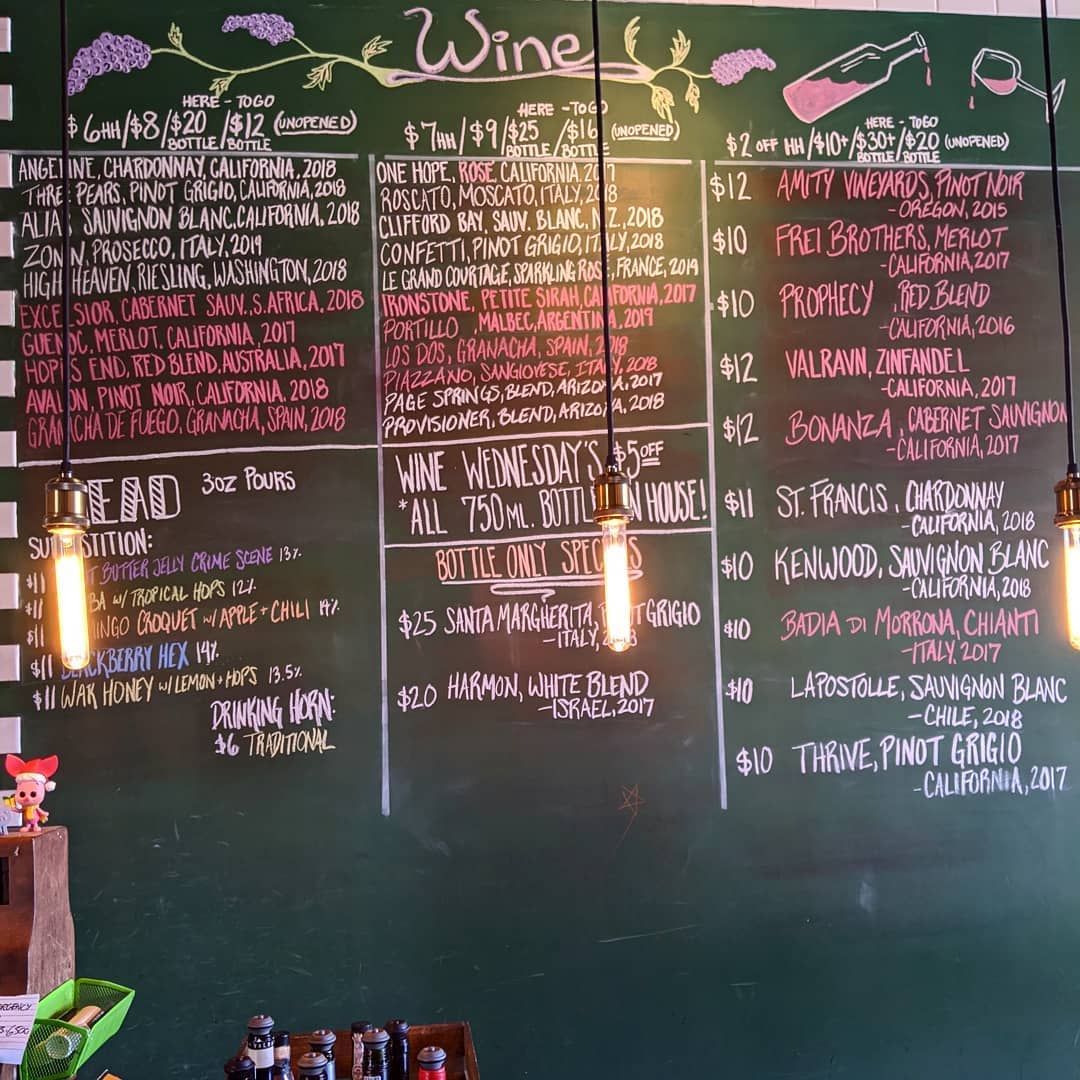 Wine
HERE - TO GO
$6HH/$8/$20 BOTTLE/$12 BOTTLE (UNOPENED)
ANGELINE, CHARDONNAY, CALIFORNIA, 2018
THREE PEARS, PINOT GRIGIO, CALIFORNIA, 2018
SAUVIGNON BLANC, CALIFORNIA, 2018
PROSECCO, ITALY, 2019
HIGH HEAVEN, RIESLING, WASHINGTON, 2018
EXCELSIOR, CABERNET SAUV., S. AFRICA, 2018
MERLOT, CALIFORNIA, 2017
END, RED BLEND, AUSTRALIA, 2017
AVALON, PINOT NOIR, CALIFORNIA, 2018
GRANACHA DE FUEGO, GRANACHA, SPAIN, 2018
3OZ POURS
BUTTER JELLY CRIME SCENE 13%
$11 W/ TROPICAL HOPS 12%
$11 CROQUET W/ APPLE + CHILI 14%
$11 BLACKBERRY HEX 14%
$11 WAR HONEY W/ LEMON + HOPS 13.5%
DRINKING HORN:
$6 TRADITIONAL
HERE - TO GO
$7HH/$9/$25 BOTTLE/$16 BOTTLE (UNOPENED)
ONE HOPE, ROSE, CALIFORNIA, 2017
ROSCATO, MOSCATO, ITALY, 2018
CLIFFORD BAY, SAUV. BLANC, N.Z., 2018
CONFETTI, PINOT GRIGIO, ITALY, 2018
LE GRAND COURTAGE, SPARKLING ROSE, FRANCE, 2019
IRONSTONE, PETITE SIRAH, CALIFORNIA, 2017
PORTILLO, MALBEC, ARGENTINA, 2019
LOS DOS, GRANACHA, SPAIN, 2018
PIAZZANO, SANGIOVESE, ITALY, 2018
PAGE SPRINGS, BLEND, ARIZONA, 2017
PROVISIONER, BLEND, ARIZONA, 2018
WINE WEDNESDAY'S $5 OFF
*ALL 750ML. BOTTLES IN HOUSE!
BOTTLE ONLY SPECIALS
$25 SANTA MARGHERITA, PINOT GRIGIO
-ITALY,
$20 HARMON, WHITE BLEND
-ISRAEL, 2017
HERE - TO GO
$2 OFF HH/$10+/$30+ BOTTLE/$20 BOTTLE (UNOPENED)
$12 AMITY VINEYARDS, PINOT NOIR
-OREGON, 2015
$10 FREI BROTHERS, MERLOT
-CALIFORNIA, 2017
$10 PROPHECY, RED BLEND
-CALIFORNIA, 2016
$12 VALRAVN, ZINFANDEL
-CALIFORNIA, 2017
$12 BONANZA, CABERNET SAUVIGNON
-CALIFORNIA, 2017
$11 ST. FRANCIS, CHARDONNAY
-CALIFORNIA, 2018
$10 KENWOOD, SAUVIGNON BLANC
-CALIFORNIA, 2018
$10 BADIA DI MORRONA, CHIANTI
-ITALY, 2017
$10 LAPOSTOLLE, SAUVIGNON BLANC
-CHILE, 2018
$10 THRIVE, PINOT GRIGIO
-CALIFORNIA, 2017